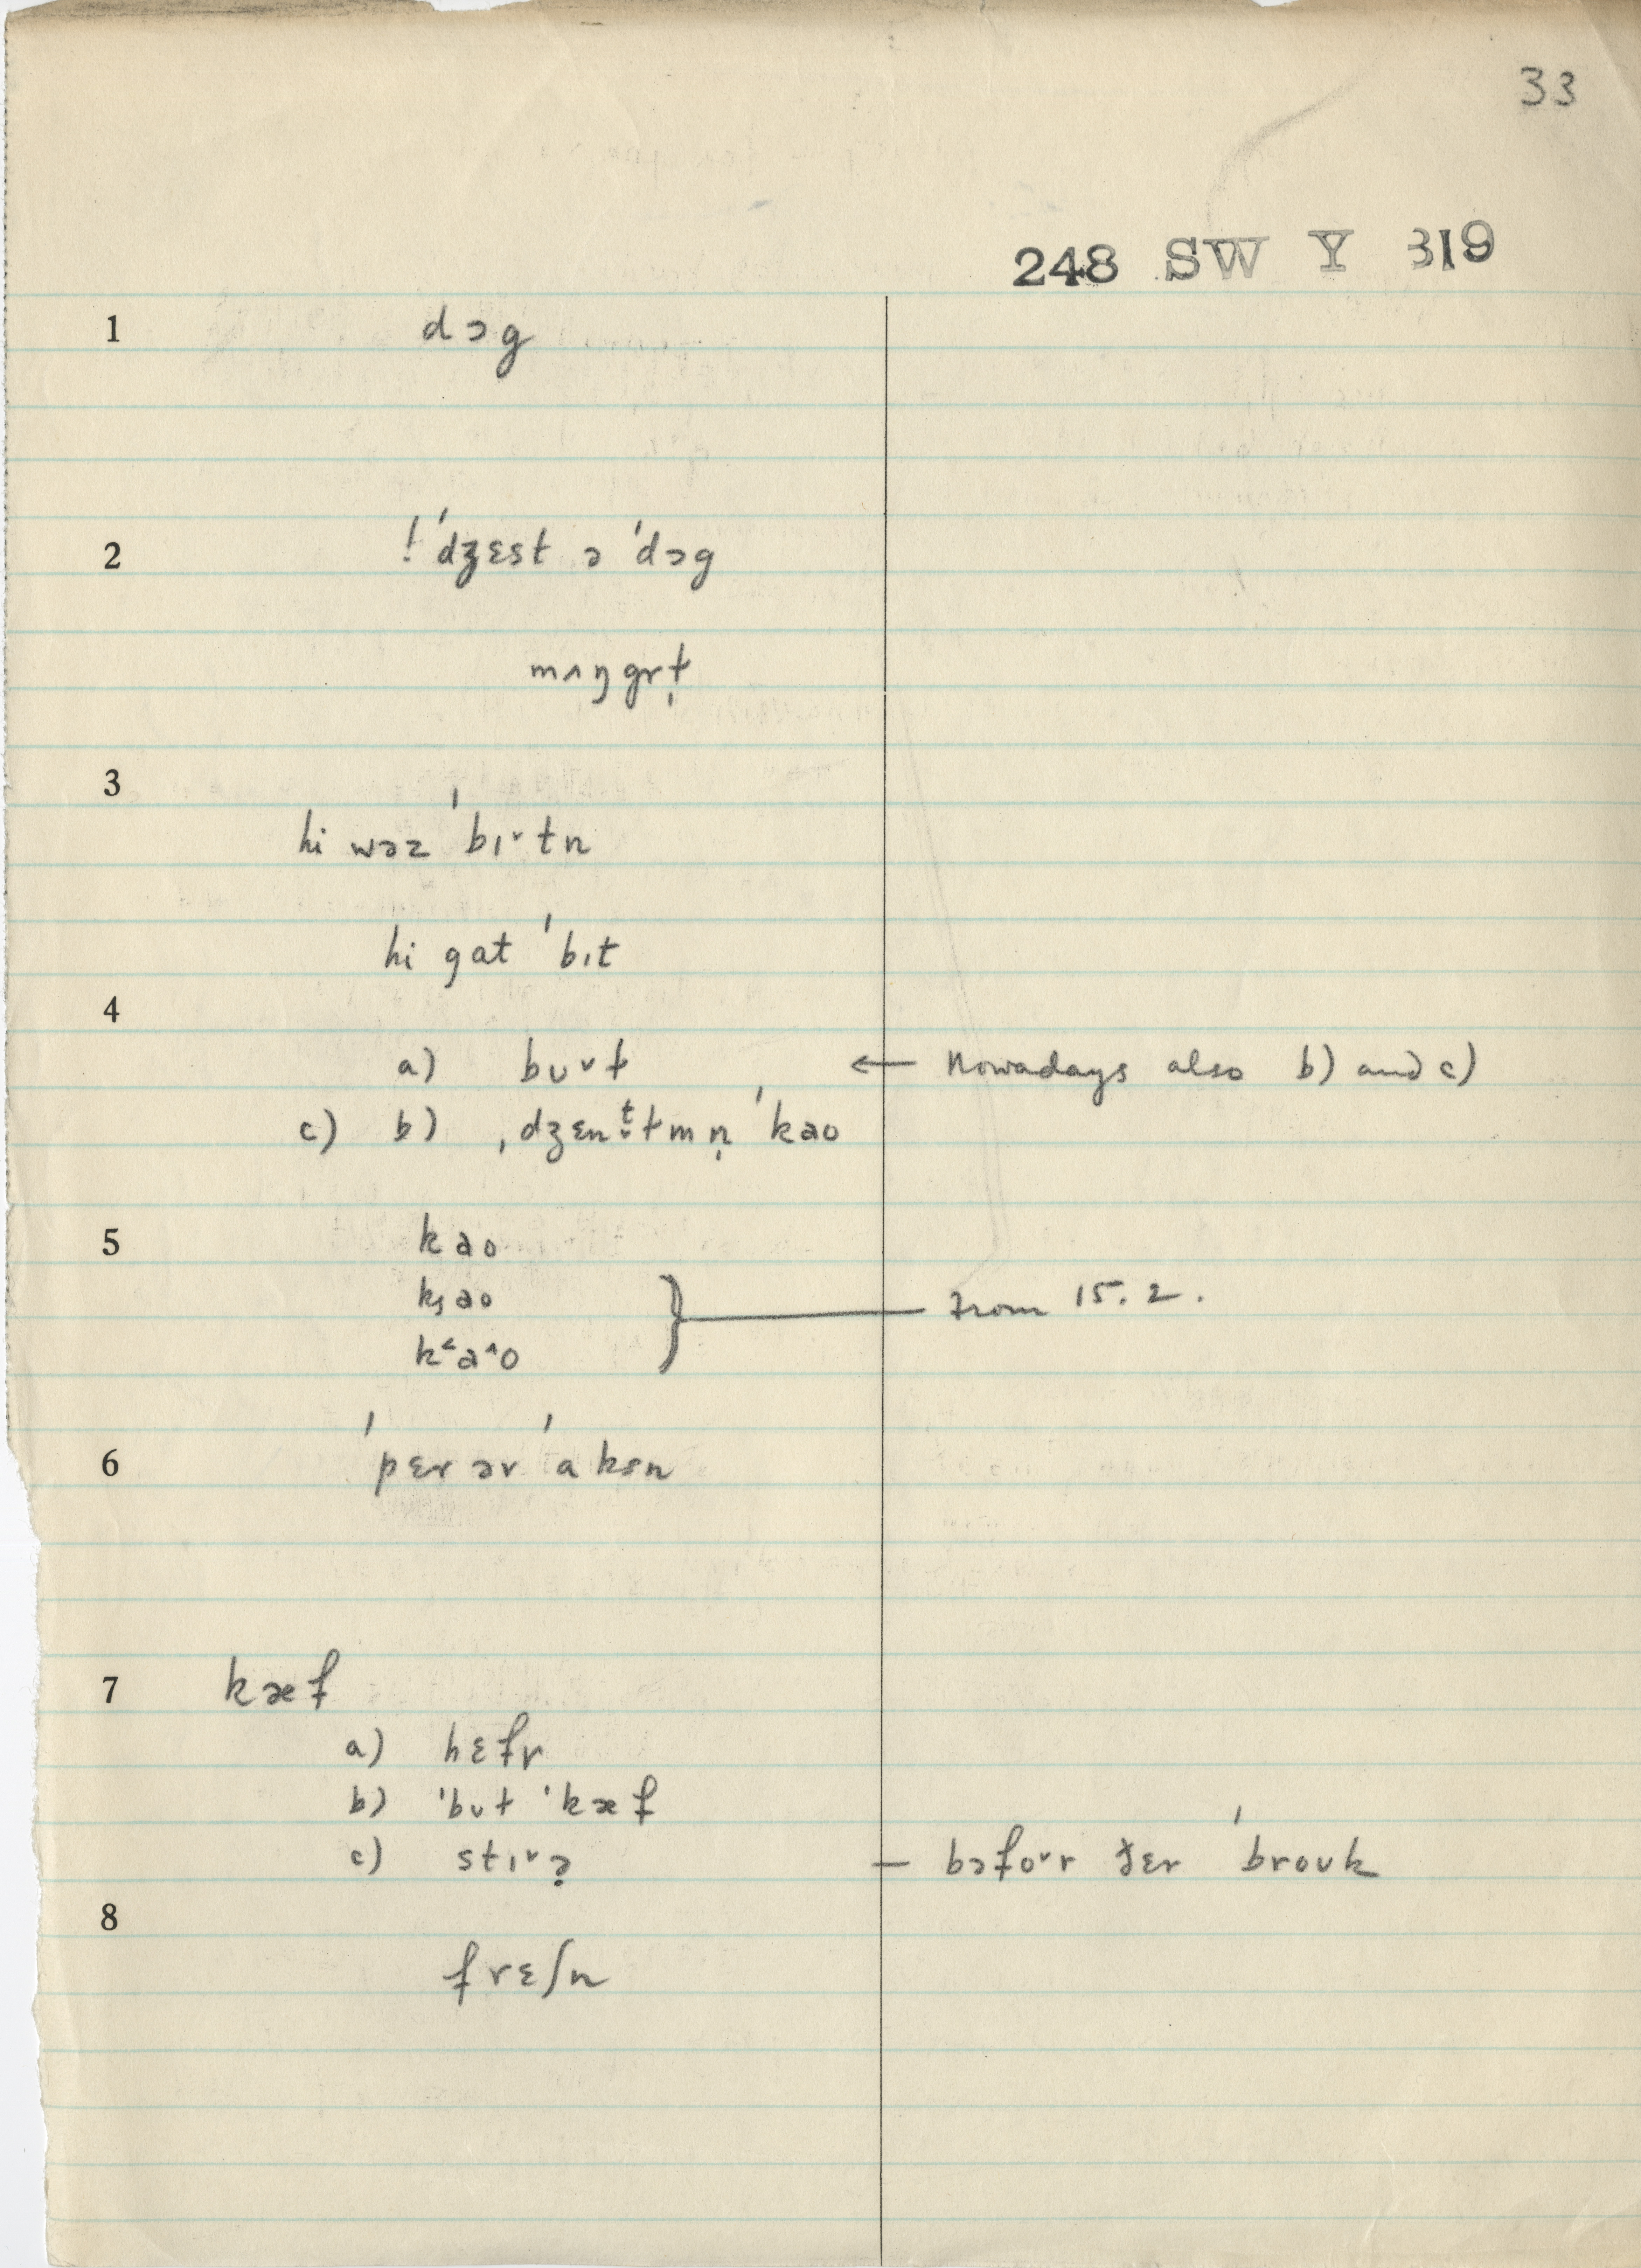 33
248 SW Y 319
1 dɔg
2 !ˈdʒɛst ə ˈdɔg
mʌŋgrɫ̩
3
hi wəz ˈbɪ˅tn
hi gat ˈbɪt
4
a) bʊ˅ɫ ← Nowadays also b) and c)
c) b) ˌdʒɛntɫmn̩ ˈkao
5 kao
kao } from 15.2.
k˂a˄o
6 ˈpɛr ər ˈaksn
7 kæf
a) hɛfr
b) ˈbʊɫ ˈkæf
c) stɪ˅ə̣ — bəfo˅r ðɛr ˈbroʊk
8
frɛʃn